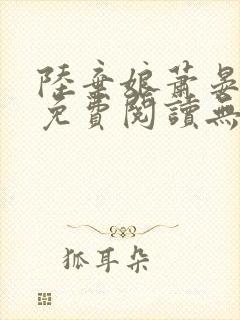 陸棄娘蕭晏
免費閱讀無
狐耳朵